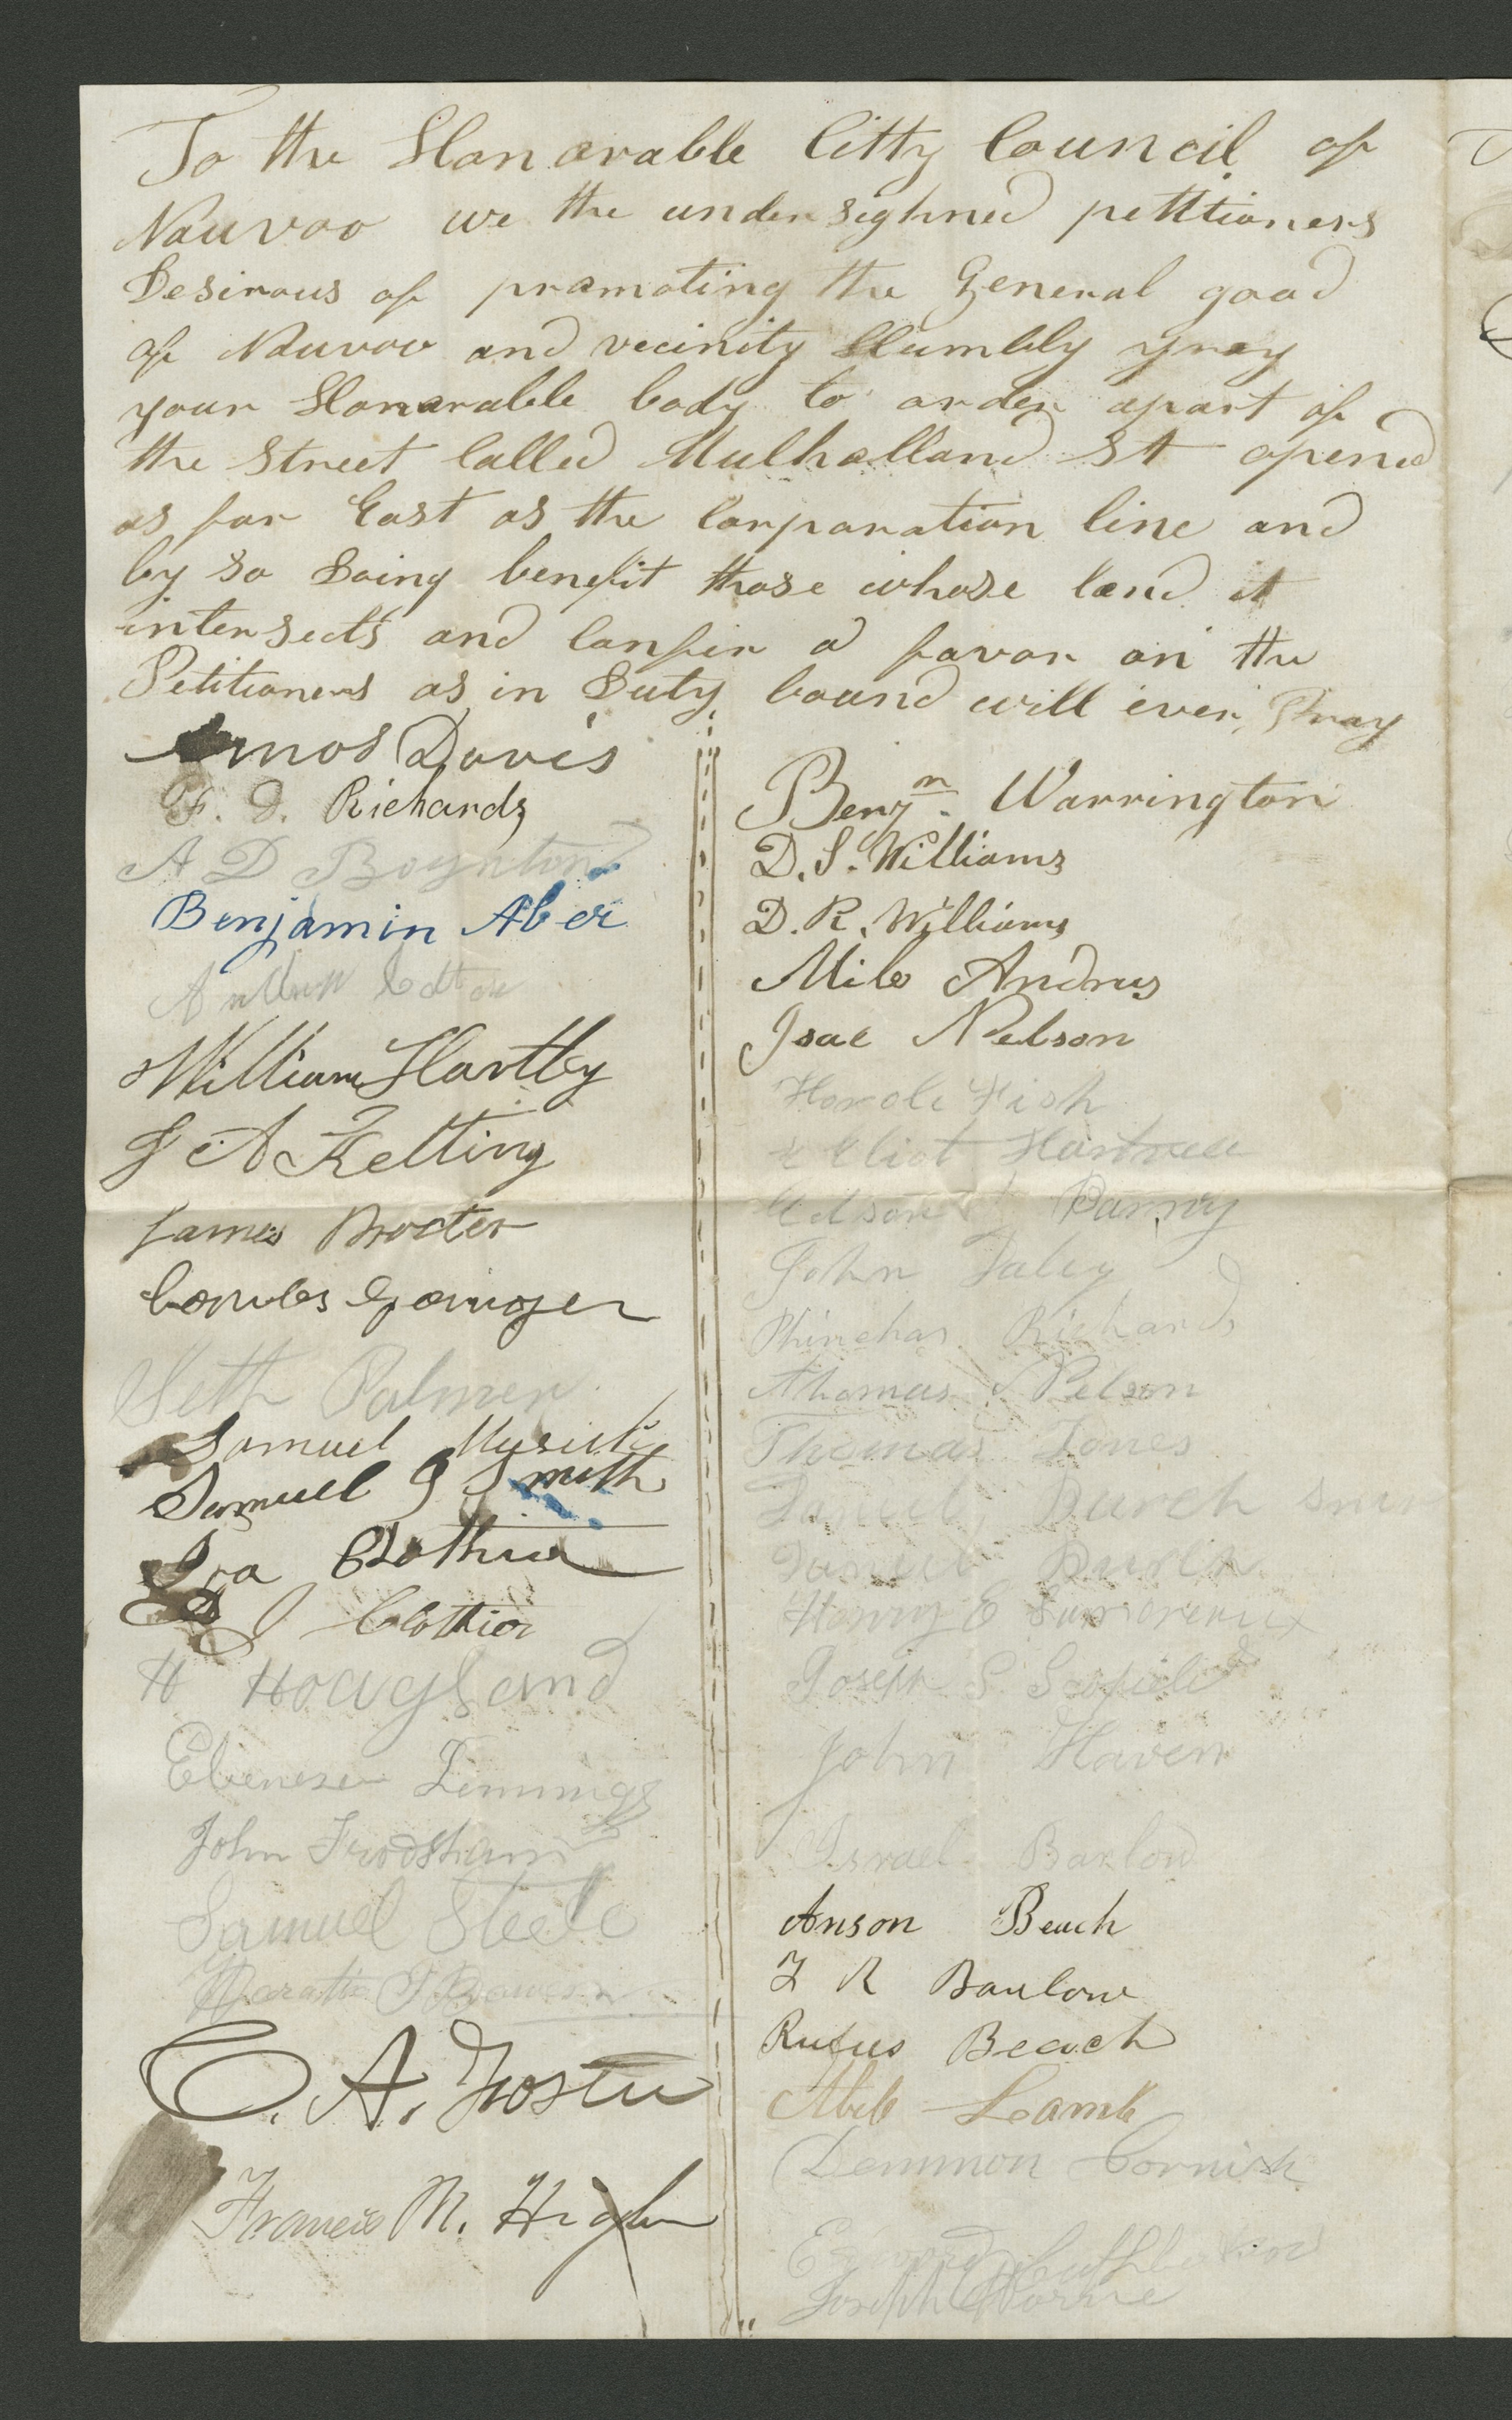 To the Honorable Citty Council of
Nauvoo we the undersighned petttioners
Desirous of promoting the General good
of Nauvoo and vecinity Humbly pray
your Honorable body to order apart of
the Street Called Mulholland St opened
as far East as the Corporation line and
by so Doing benefit those whose land it
intersects and Confir a favor on the
Petitioners as in Duty bound will ever, Pray
Amos Davis
F. D. Richards
A D Boynton
Benjamin Aber
William Hartley
James Procter
Seth Palmer
Samuel Musick
Samuel G Smith
Ira Clothier
Clothier
H Hoagland
Ebenezer Jennings
John Frodsham
Samuel Steele
C. A. Foster
Francis M. Higbee
Benjn. Warrington
D. S. Williams
D. R. Williams
Milo Andrus
Isac Nelson
Horace Fish
Edson Barney
John Daley
Phinehas Richards
Thomas Nelson
Thomas Jones
Daniel Burch
Daniel Burch
Joseph S. Scofield
John Haven
Israel Barlow
Anson Beach
I R Barlow
Rufus Beach
Abel Lamb
Demmon Cornish
Joseph Horne